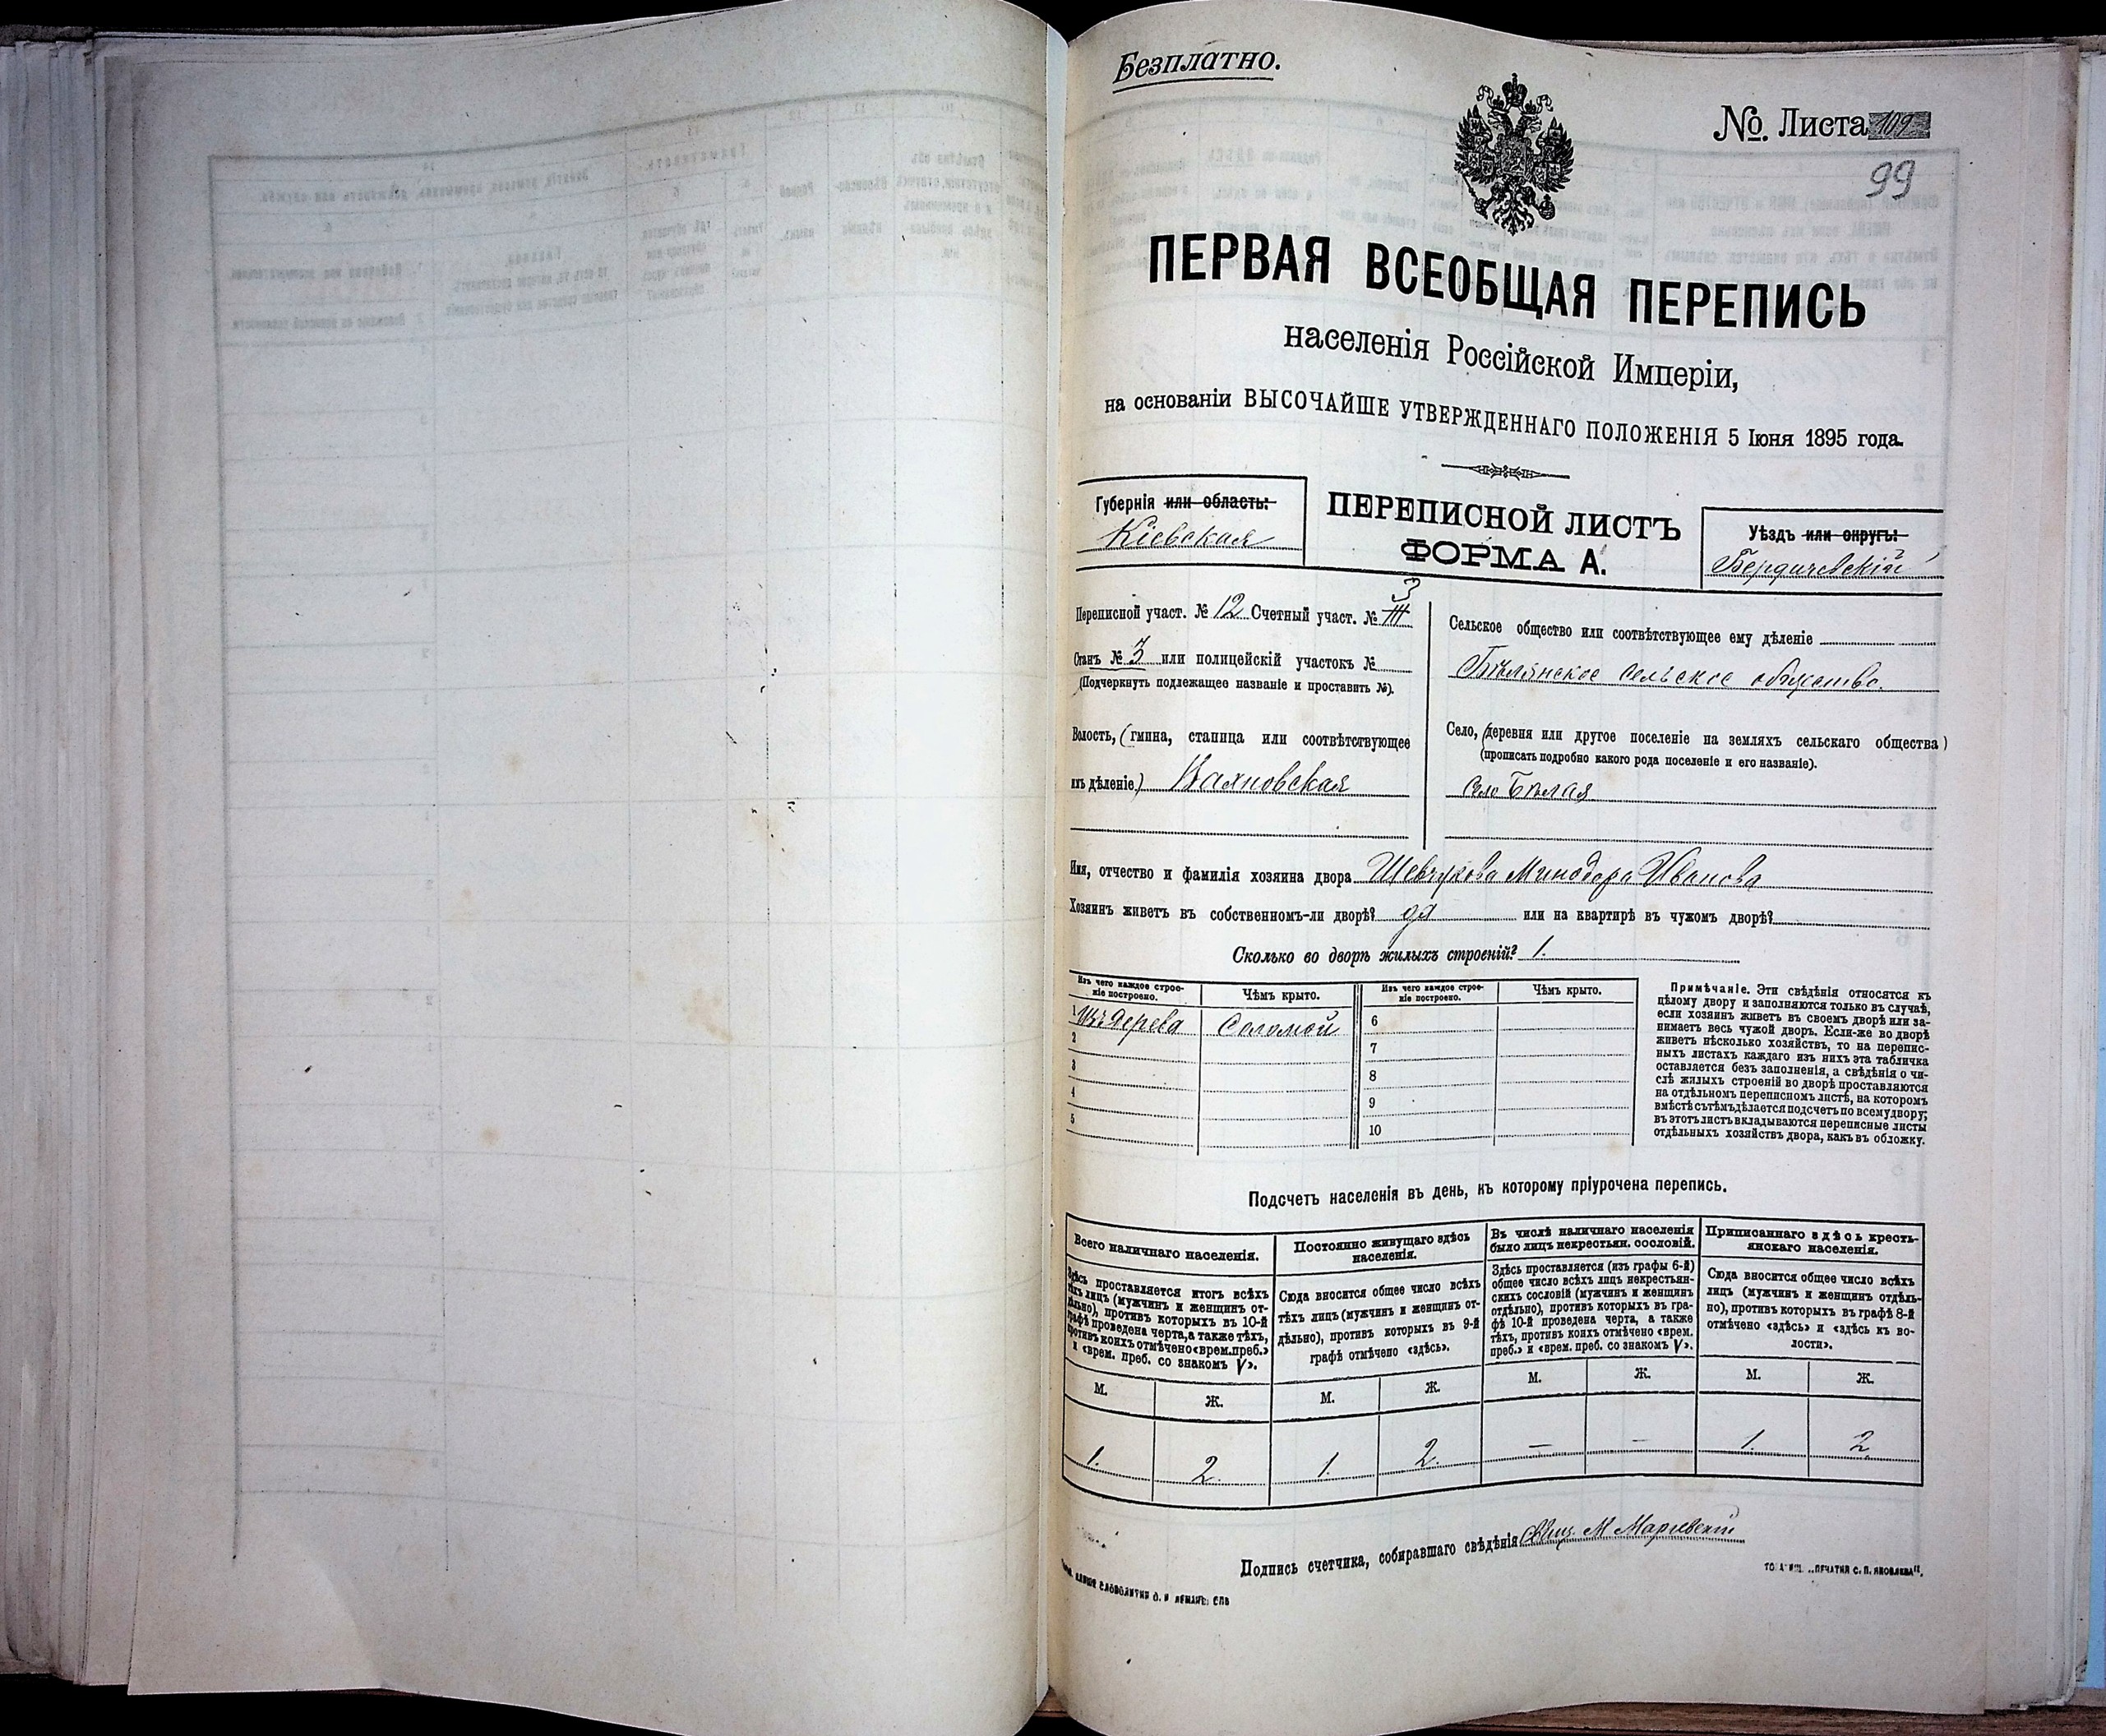 Безплатно.
№. Листа 109
99
ПЕРВАЯ ВСЕОБЩАЯ ПЕРЕПИСЬ
населенія Россійской Имперіи,
на основаніи ВЫСОЧАЙШЕ УТВЕРЖДЕННАГО ПОЛОЖЕНІЯ 5 Іюня 1895 года.
Губернія или область:
Кіевская
ПЕРЕПИСНОЙ ЛИСТЪ
ФОРМА А.
Уѣздъ или округъ:
Бердичевскій
3
Переписной участ. № 12 Счетный участ. № III
Станъ № 3 или полицейскій участокъ №
(Подчеркнуть подлежащее названіе и проставить №).
Волость, (гмина, станица или соотвѣтствующее
имъ дѣленіе) Вахновская
Сельское общество или соотвѣтствующее ему дѣленіе
Бѣлянское сельское общество.
Село, (деревня или другое поселеніе на земляхъ сельскаго общества)
(прописать подробно какого рода поселеніе и его названіе).
село Бѣлая
Имя, отчество и фамилія хозяина двора Шевчукова Минодора Иванова
Хозяинъ живетъ въ собственномъ-ли дворѣ? да или на квартирѣ въ чужомъ дворѣ?
Сколько во дворѣ жилыхъ строеній? 1.
Изъ чего каждое строе-
ніе построено.
Чѣмъ крыто.
Изъ чего каждое строе-
ніе построено.
Чѣмъ крыто.
1 Изъ дерева Соломой 6
2 7
3 8
4 9
5 10
Примѣчаніе. Эти свѣдѣнія относятся къ
цѣлому двору и заполняются только въ случаѣ,
если хозяинъ живетъ въ своемъ дворѣ или за-
нимаетъ весь чужой дворъ. Если-же во дворѣ
живетъ нѣсколько хозяйствъ, то на перепис-
ныхъ листахъ каждаго изъ нихъ эта табличка
оставляется безъ заполненія, а свѣдѣнія о чи-
слѣ жилыхъ строеній во дворѣ проставляются
на отдѣльномъ переписномъ листѣ, на которомъ
вмѣстѣ съ тѣмъ дѣлается подсчетъ по всему двору;
въ этотъ листъ вкладываются переписные листы
отдѣльныхъ хозяйствъ двора, какъ въ обложку.
Подсчетъ населенія въ день, къ которому пріурочена перепись.
Всего наличнаго населенія.
Здѣсь проставляется итогъ всѣхъ
тѣхъ лицъ (мужчинъ и женщинъ от-
дѣльно), противъ которыхъ въ 10-й
графѣ проведена черта, а также тѣхъ,
противъ коихъ отмѣчено «врем. преб.»
и «врем. преб. со знакомъ V».
Постоянно живущаго здѣсь
населенія.
Сюда вносится общее число всѣхъ
тѣхъ лицъ (мужчинъ и женщинъ от-
дѣльно), противъ которыхъ въ 9-й
графѣ отмѣчено «здѣсь».
Въ числѣ наличнаго населенія
было лицъ некрестьян. сословій.
Здѣсь проставляется (изъ графы 6-й)
общее число всѣхъ лицъ некрестьян-
скихъ сословій (мужчинъ и женщинъ
отдѣльно), противъ которыхъ въ гра-
фѣ 10-й проведена черта, а также
тѣхъ, противъ коихъ отмѣчено «врем.
преб.» и «врем. преб. со знакомъ V».
Приписаннаго здѣсь кресть-
янскаго населенія.
Сюда вносится общее число всѣхъ
лицъ (мужчинъ и женщинъ отдѣль-
но), противъ которыхъ въ графѣ 8-й
отмѣчено «здѣсь» и «здѣсь къ во-
лости».
М. Ж. М. Ж. М. Ж. М. Ж.
1. 2. 1. 2. — — 1. 2
Подпись счетчика, собиравшаго свѣдѣнія М